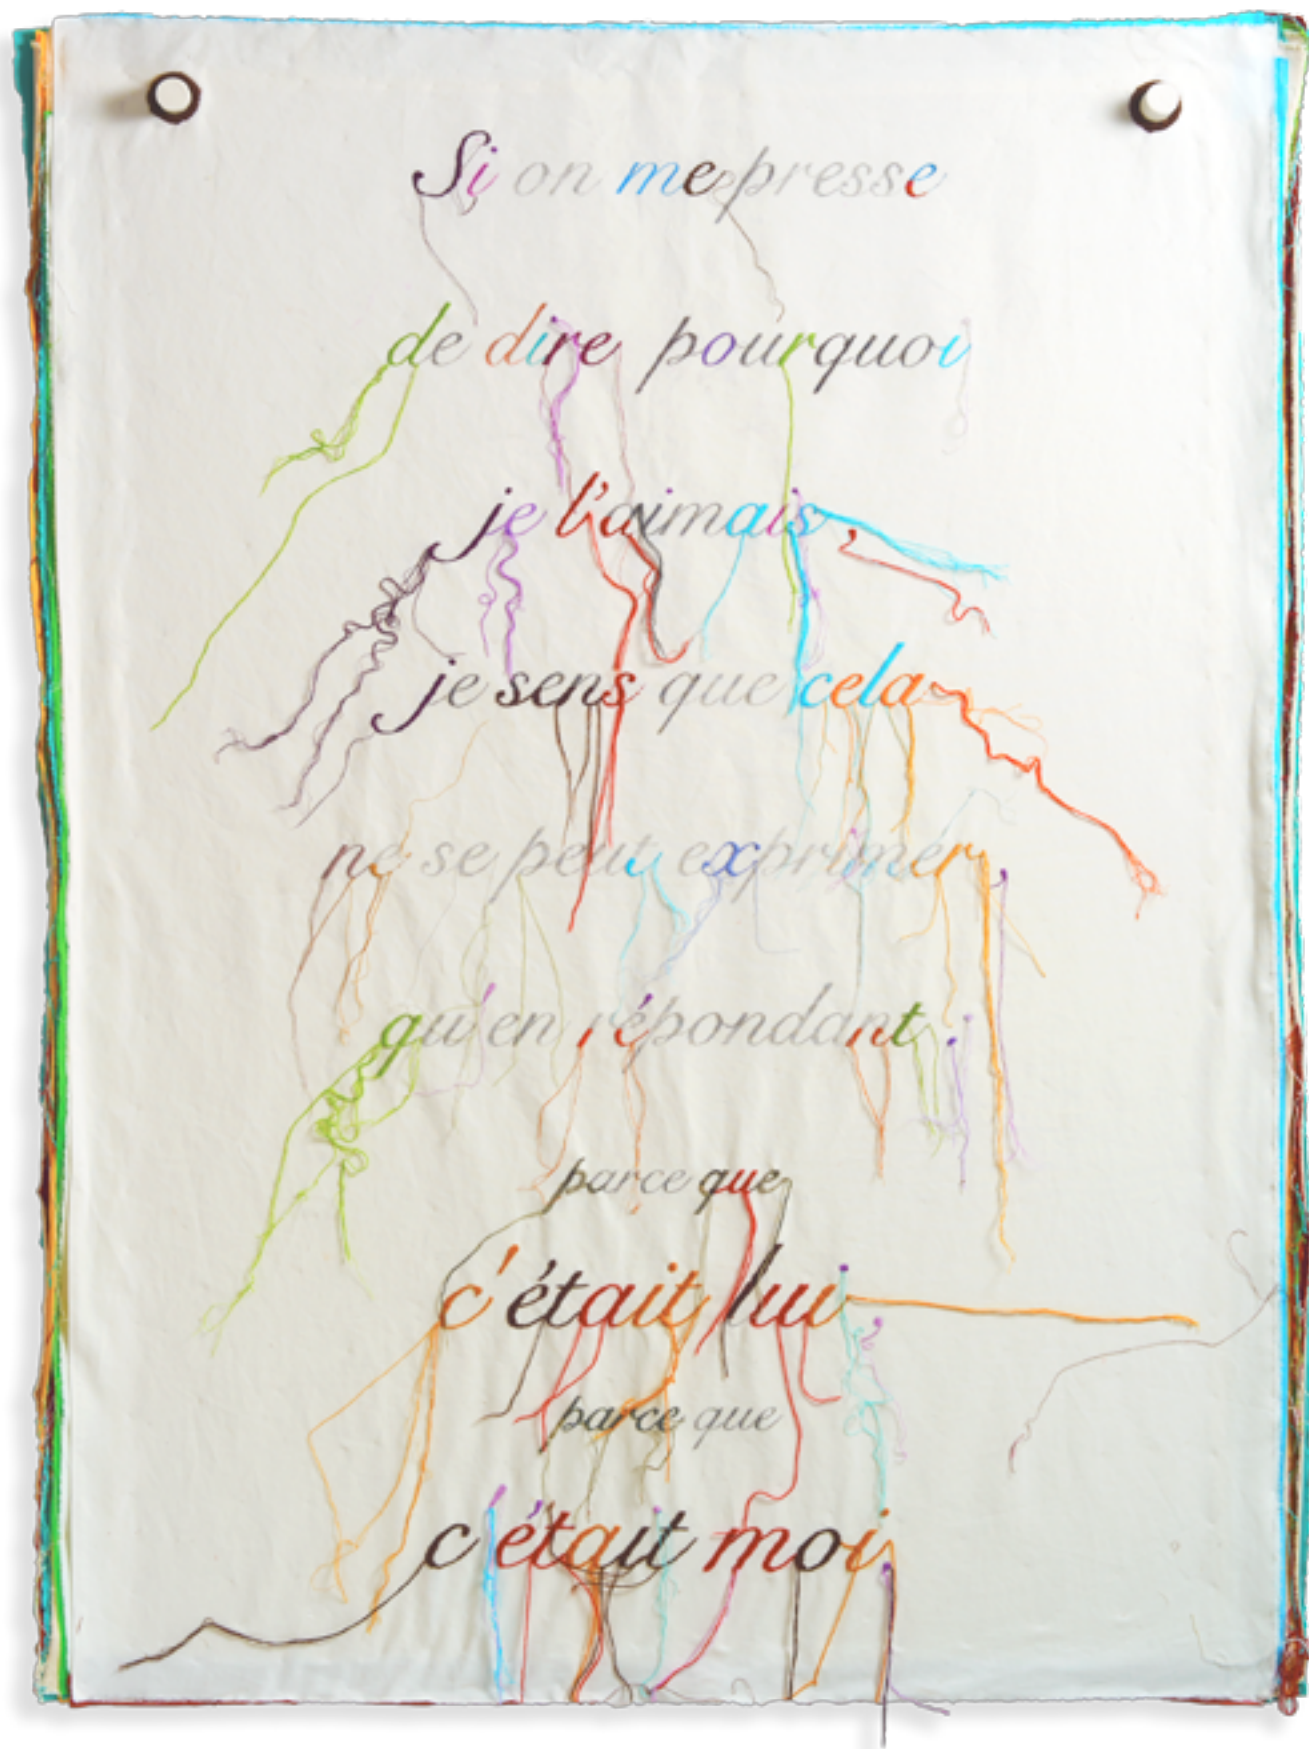 Si on me presse
de dire pourquoi
je l'aimais,
je sens que cela
ne se peut exprimer,
qu'en répondant :
parce que
c'était lui,
parce que
c'était moi.